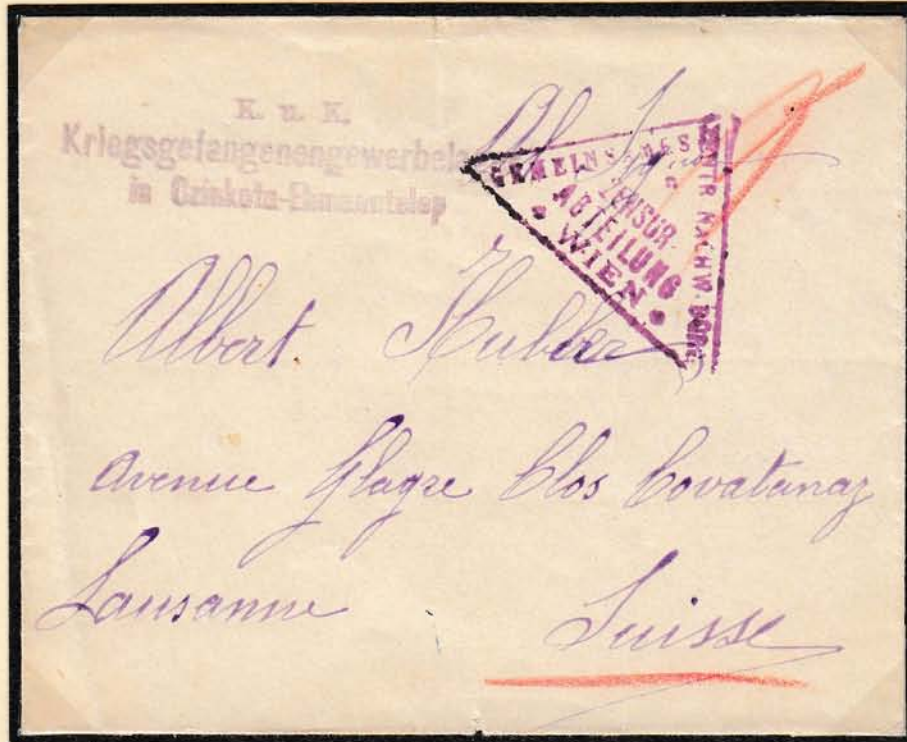 K. u. K.
Kriegsgefangenengewerbela
in Czinkota-Ehmanntelep
GEMEINSAMES
ZENSUR-
ABTEILUNG
* WIEN *
ZENTR. NACHW. BÜRO
Albert
Avenue Glayre Clos Covatanaz
Lausanne
Suisse